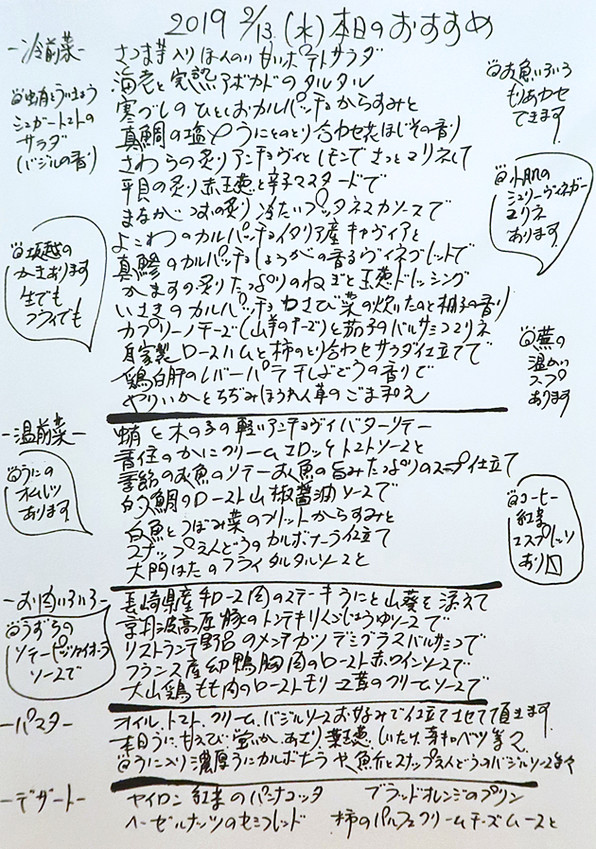 2019 2/13 (水) 本日のおすすめ
-冷前菜-
さつま芋入り ほんのり甘いポテトサラダ
海老と完熟アボカドのタルタル
寒ブリのひとしおカルパッチョ からすみと
真鯛の塩〆うにとのとり合わせ 花ほじその香り
さわらの炙り アンチョヴィとレモンでさっとマリネして
平貝の炙り 赤玉葱と辛子マスタードで
まながつおの炙り 冷たいプッタネスカソースで
よこわのカルパッチョ イタリア産キャヴィアと
真鯵のカルパッチョ しょうがの香るヴィネグレットで
かますの炙り たっぷりのねぎと玉葱ドレッシング
いさきのカルパッチョ わさび菜の炊いたのと柚子の香り
カプリーノチーズ(山羊のチーズ)と茄子のバルサミコマリネ
自家製ロースハムと柿のとり合わせ サラダ仕立てで
鶏白肝のレバーパテ 干しぶどうの香りで
やりいかとちぢみほうれん草のごま和え
蛸とういきょう
シュガートマトの
サラダ
(バジルの香り)
坂越の
かきあります
生でも
フライでも
お魚いろいろ
もりあわせ
できます
小肌の
シェリーヴィネガー
マリネ
あります
蕪の
温かい
スープ
あります
-温前菜-
蛸と木の子の軽いアンチョヴィバターソテー
香住のかにクリームコロッケ トマトソースと
季節のお魚のソテー お魚の旨みたっぷりのスープ仕立て
白甘鯛のロースト 山椒醤油ソースで
白魚とうぼみ菜のフリット からすみと
スナップえんどうのカルボナーラ仕立て
大門はたのフライ タルタルソースと
うにの
オムレツ
あります
コーヒー
紅茶
エスプレッソ
あり〼
-お肉いろいろ-
長崎県産和牛ロース肉のステーキ うにと山葵を添えて
京丹波高原豚のトンテキ りんごじょうゆソースで
リストランテ野呂のメンチカツ デミグラスバルサミコで
フランス産幼鴨胸肉のロースト 赤ワインソースで
大山鶏もも肉のロースト モリーユ茸のクリームソースで
うずらの
ソテー ディアボラ
ソースで
-パスタ-
オイル、トマト、クリーム、バジルソース お好みで仕立てさせて頂きます
本日うに、甘えび、蛍いか、あさり、葉玉葱、しいたけ、芽キャベツ等々
うに入り濃厚うにカルボナーラや、魚介とスナップえんどうのバジルソース等々
-デザート-
セイロン紅茶のパンナコッタ
ブラッドオレンジのプリン
ヘーゼルナッツのセミフレッド
柿のパルフェ クリームチーズムースと